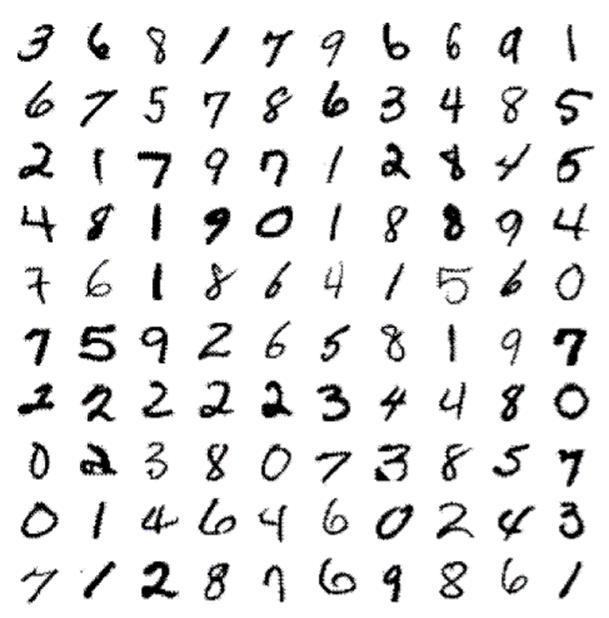 3 6 8 1 7 9 6 6 9 1
6 7 5 7 8 6 3 4 8 5
2 1 7 9 7 1 2 8 4 5
4 8 1 9 0 1 8 8 9 4
7 6 1 8 6 4 1 5 6 0
7 5 9 2 6 5 8 1 9 7
2 2 2 2 2 3 4 4 8 0
0 2 3 8 0 7 3 8 5 7
0 1 4 6 4 6 0 2 4 3
7 1 2 8 7 6 9 8 6 1